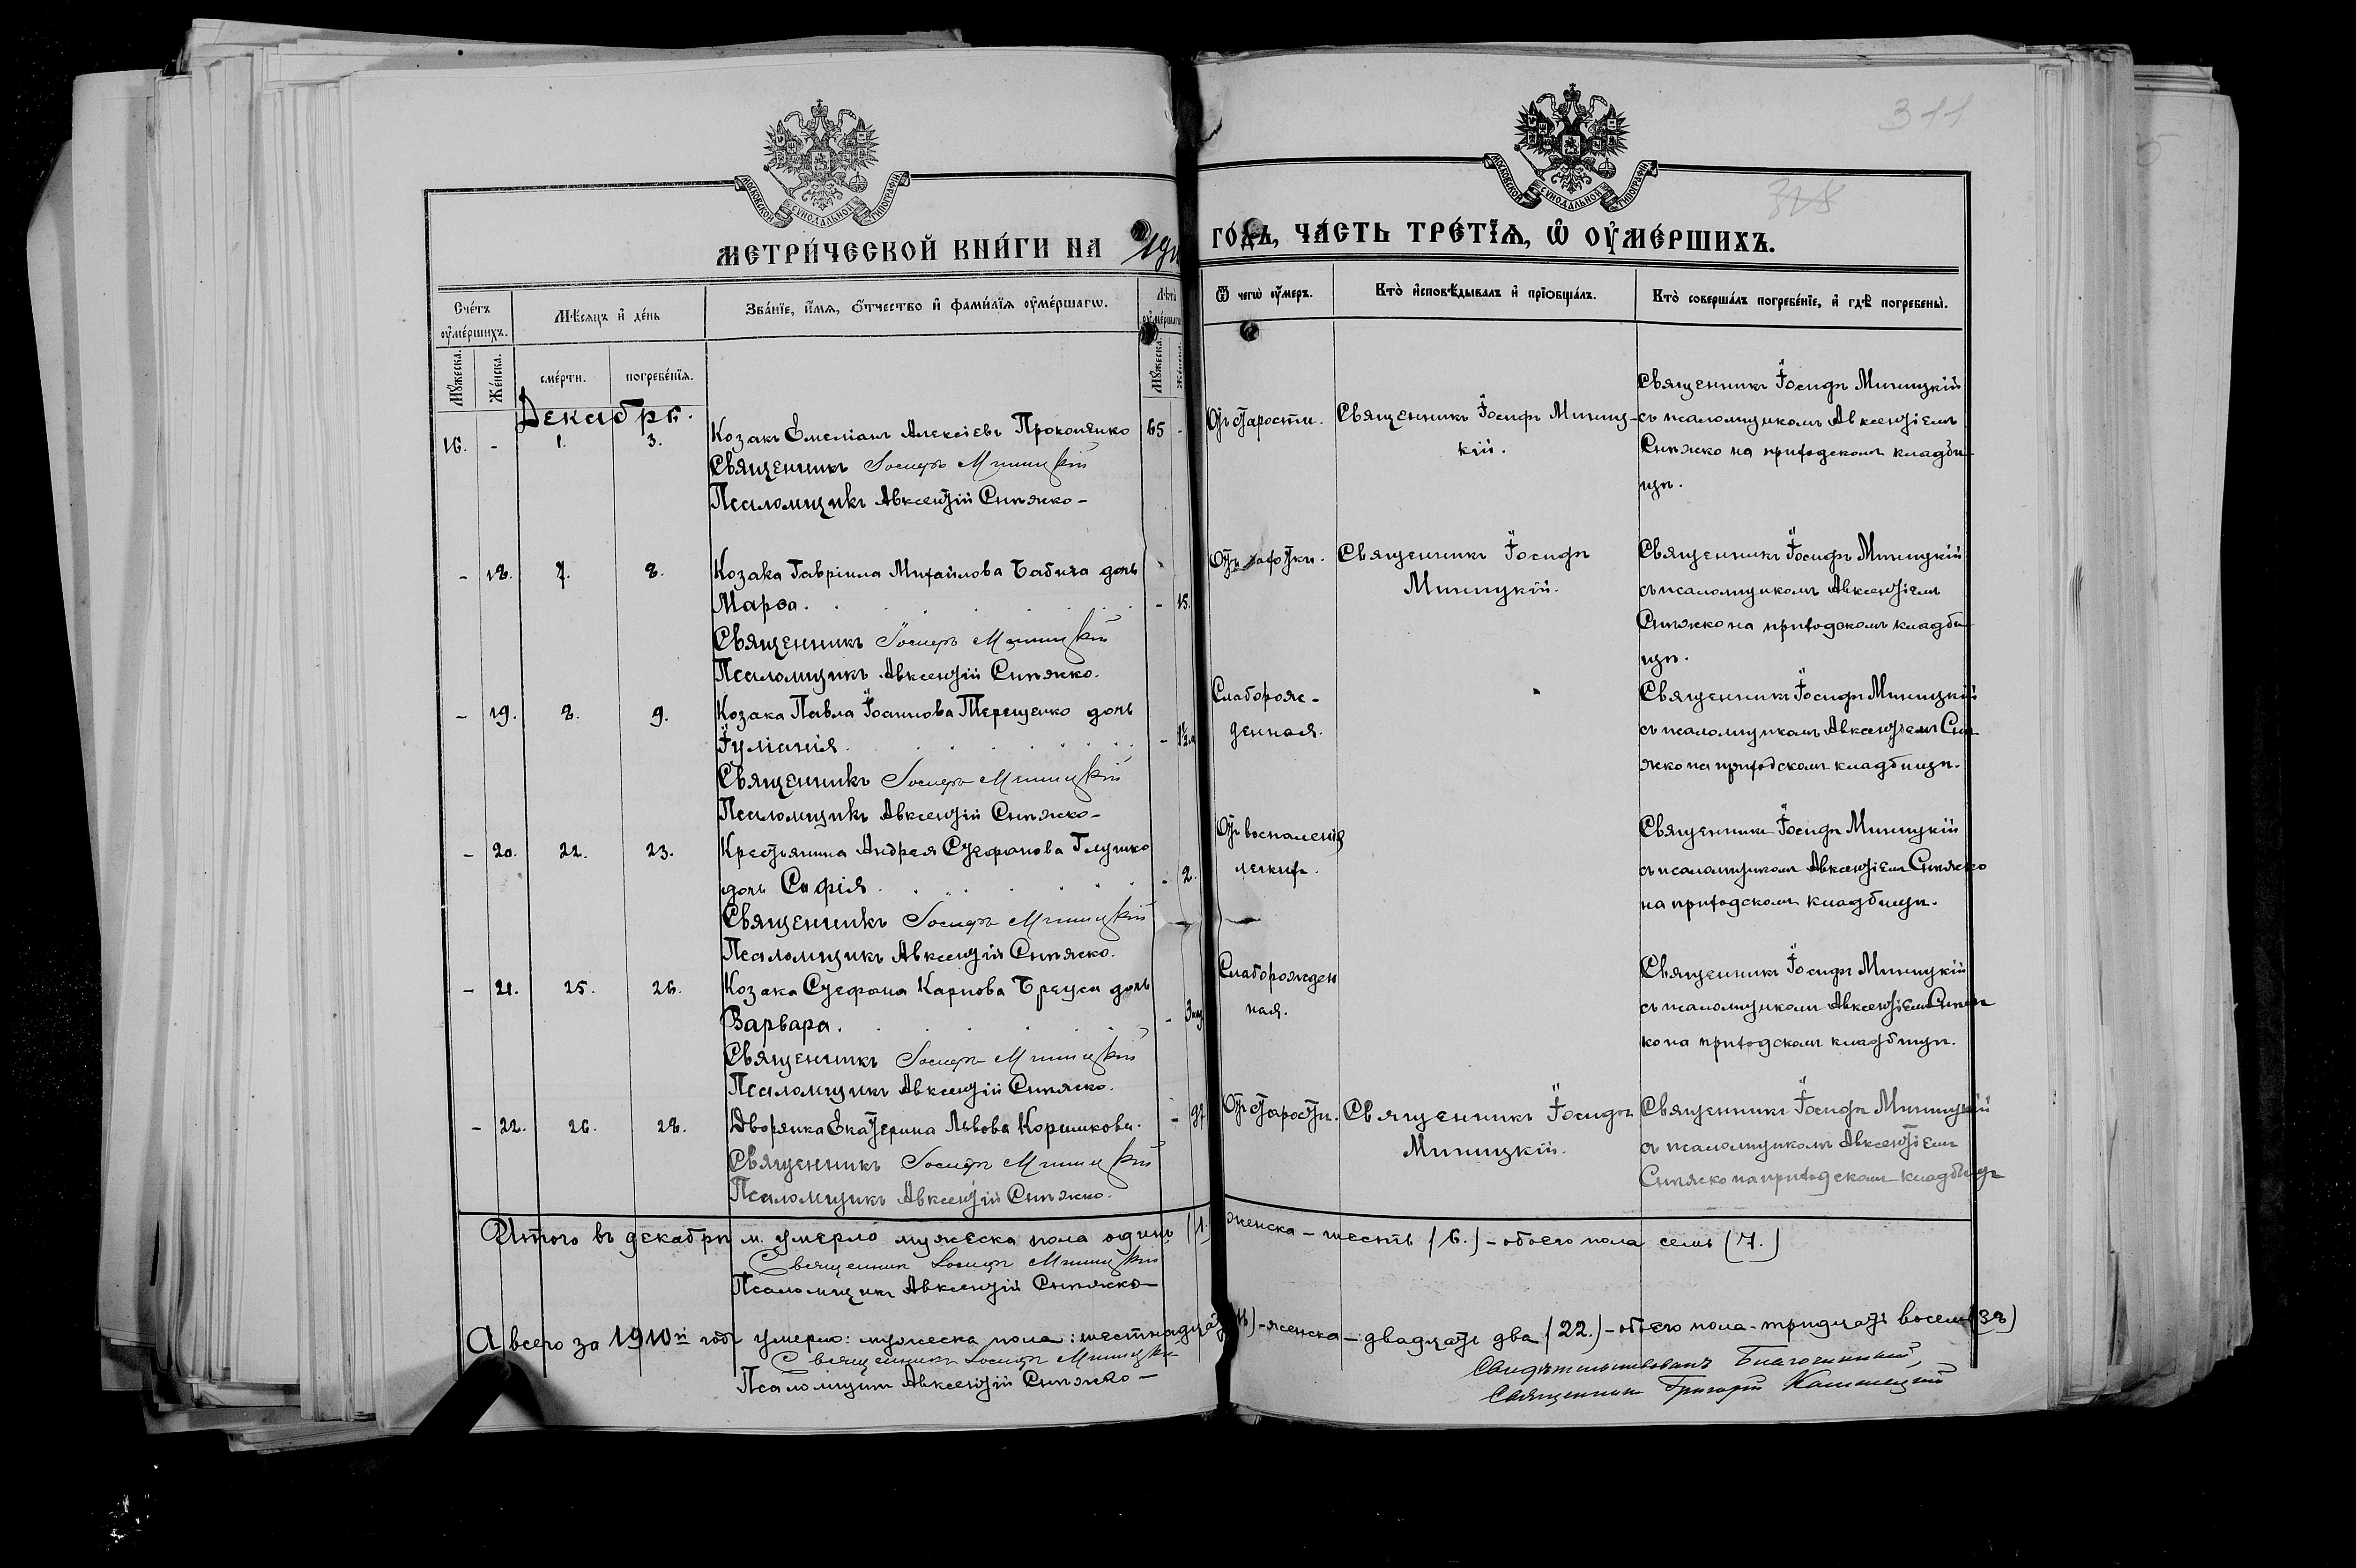 311
318
МОСКОВСКОЙ СѴНОДАЛЬНОЙ ТИПОГРАФІИ
МОСКОВСКОЙ СѴНОДАЛЬНОЙ ТИПОГРАФІИ
МЕТРИ́ЧЕСКОЙ КНИ́ГИ НА 1910 ГО́ДЪ, ЧА́СТЬ ТРЕ́ТЇѦ, Ѡ҆ ОУ҆МЕ́РШИХЪ.
Сче́тъ оу҆ме́ршихъ.
Мꙋ́жеска.
Же́нска.
Мѣ́сѧцъ и҆ де́нь
сме́рти.
погребе́нїѧ.
Зва́нїе, и҆́мѧ, ѻ҆́тчество и҆ фами́лїѧ оу҆ме́ршагѡ.
Лѣ́та оу҆ме́ршагѡ
Мꙋ́жеска.
Же́нска.
Ѿ чегѡ̀ оу҆́меръ.
Кто̀ и҆сповѣ́дывалъ и҆ прїѻбща́лъ.
Кто̀ соверша́лъ погребе́нїе, и҆ гдѣ̀ погребены̀.
Декабрь.
16. - 1. 3. Козакъ Емеліанъ Алексіевъ Прокопенко 65 -
Священникъ Іосифъ Миницкій
Псаломщикъ Авксентій Сипяжко -
Отъ старости.
Священникъ Іосифъ Миниц-
кій.
Священникъ Іосифъ Миницкій
съ псаломщикомъ Авксентіемъ
Сипяжко на приходскомъ кладби-
щѣ.
- 18. 7. 8. Козака Гавріила Михайлова Бабича дочь
Марѳа. - 15.
Священникъ Іосифъ Миницкій
Псаломщикъ Авксентій Сипяжко.
Отъ чахотки.
Священникъ Іосифъ
Миницкій.
Священникъ Іосифъ Миницкій
съ псаломщикомъ Авксентіемъ
Сипяжко на приходскомъ кладби-
щѣ.
- 19. 8. 9. Козака Павла Іоаннова Терещенко дочь
Іуліанія. - 1½ м
Священникъ Іосифъ Миницкій
Псаломщикъ Авксентій Сипяжко -
Слаборож-
денная.
Священникъ Іосифъ Миницкій
съ псаломщикомъ Авксентіемъ Сип
яжко на приходскомъ кладбищѣ.
- 20. 22. 23. Крестьянина Андрея Стефанова Глушко
дочь Софія. - 2.
Священникъ Іосифъ Миницкій
Псаломщикъ Авксентій Сипяжко.
Отъ воспаленія
легкихъ.
Священникъ Іосифъ Миницкій
съ псаломщикомъ Авксентіемъ Сипяжко
на приходскомъ кладбищѣ.
- 21. 25. 26. Козака Стефана Карпова Бреуса дочь
Варвара. - 3
Священникъ Іосифъ Миницкій
Псаломщикъ Авксентій Сипяжко.
Слаборожден
ная.
Священникъ Іосифъ Миницкій
съ псаломщикомъ Авксентіемъ Сипяж
ко на приходскомъ кладбищѣ.
- 22. 26. 28. Дворянка Екатерина Львова Коршикова. -
Священникъ Іосифъ Миницкій
Псаломщикъ Авксентій Сипяжко.
Отъ старости.
Священникъ Іосифъ
Миницкій.
Священникъ Іосифъ Миницкій
съ псаломщикомъ Авксентіемъ
Сипяжко на приходскомъ кладбищѣ
Итого въ декабрѣ м. умерло мужеска пола одинъ (1.) женска - шесть (6.) - обоего пола семь (7.)
Священникъ Іосифъ Миницкій
Псаломщикъ Авксентій Сипяжко -
А всего за 1910й годъ умерло: мужеска пола: шестнадцать (16) - женска - двадцать два (22.) - обоего пола - тридцать восемь (38)
Священникъ Іосифъ Миницкій
Псаломщикъ Авксентій Сипяжко -
Свидѣтельствовалъ Благочинный,
Священникъ Григорій